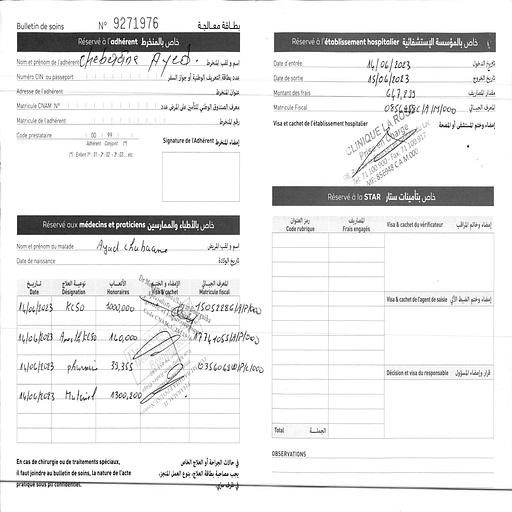 Bulletin de soins N° 9271976 بطاقة معالجة
Réservé à l'adhérent خاص بالمنخرط
Nom et prénom de l'adhérent Chebaane Ayed. اسم و لقب المنخرط
Numéro CIN ou passeport عدد بطاقة التعريف الوطنية أو جواز السفر
Adresse de l'adhérent عنوان المنخرط
Matricule CNAM N°
Matricule de l'adhérent رقم المنخرط
Code prestataire 00 99
Adhérent Conjoint (*)
(*) : Enfant N° : 01 - 21 - 02 - 21 - 03 ... etc
Signature de l'Adhérent إمضاء المنخرط
Réservé aux médecins et praticiens خاص بالأطباء والممارسين
Nom et prénom du malade Ayed chebaane اسم و لقب المريض
Date de naissance تاريخ الولادة
تاريخ نوعية العلاج الأتعاب الإمضاء و الختم المعرف الجبائي
Date Désignation Honoraires Visa & cachet Matricule fiscal
14/04/2023 KC50 1000,000
14/04/2023 140,000
14/04/2023 39,355
14/04/2023 Materiel 1300,200
En cas de chirurgie ou de traitements spéciaux,
il faut joindre au bulletin de soins, la nature de l'acte
pratiqué sous pli confidentiel.
في حالات الجراحة أو العلاج الخاص
يجب مصاحبة بطاقة العلاج، بنوع العمل المنجز،
في ظرف سري.
Réservé à l'établissement hospitalier خاص بالمؤسسة الإستشفائية
Date d'entrée 14/04/2023 تاريخ الدخول
Date de sortie 15/04/2023 تاريخ الخروج
Montant des frais 647,299 مقدار المصاريف
Matricule Fiscal المعرف الجبائي
Visa et cachet de l'établissement hospitalier إمضاء وختم المستشفى أو المصحة
CLINIQUE LA ROSE
Prise en Charge
Tel: 71 100 900 - Fax: 71 100 917
MF: 856948 C A M 000
Réservé à la STAR خاص بتأمينات ستار
رمز العنوان المصاريف
Code rubrique Frais engagés
Visa & cachet du vérificateur إمضاء وختم المراقب
Visa & cachet de l'agent de saisie إمضاء وختم الضبط الآلي
Décision et visa du responsable قرار وإمضاء المسؤول
Total الجملة
OBSERVATIONS